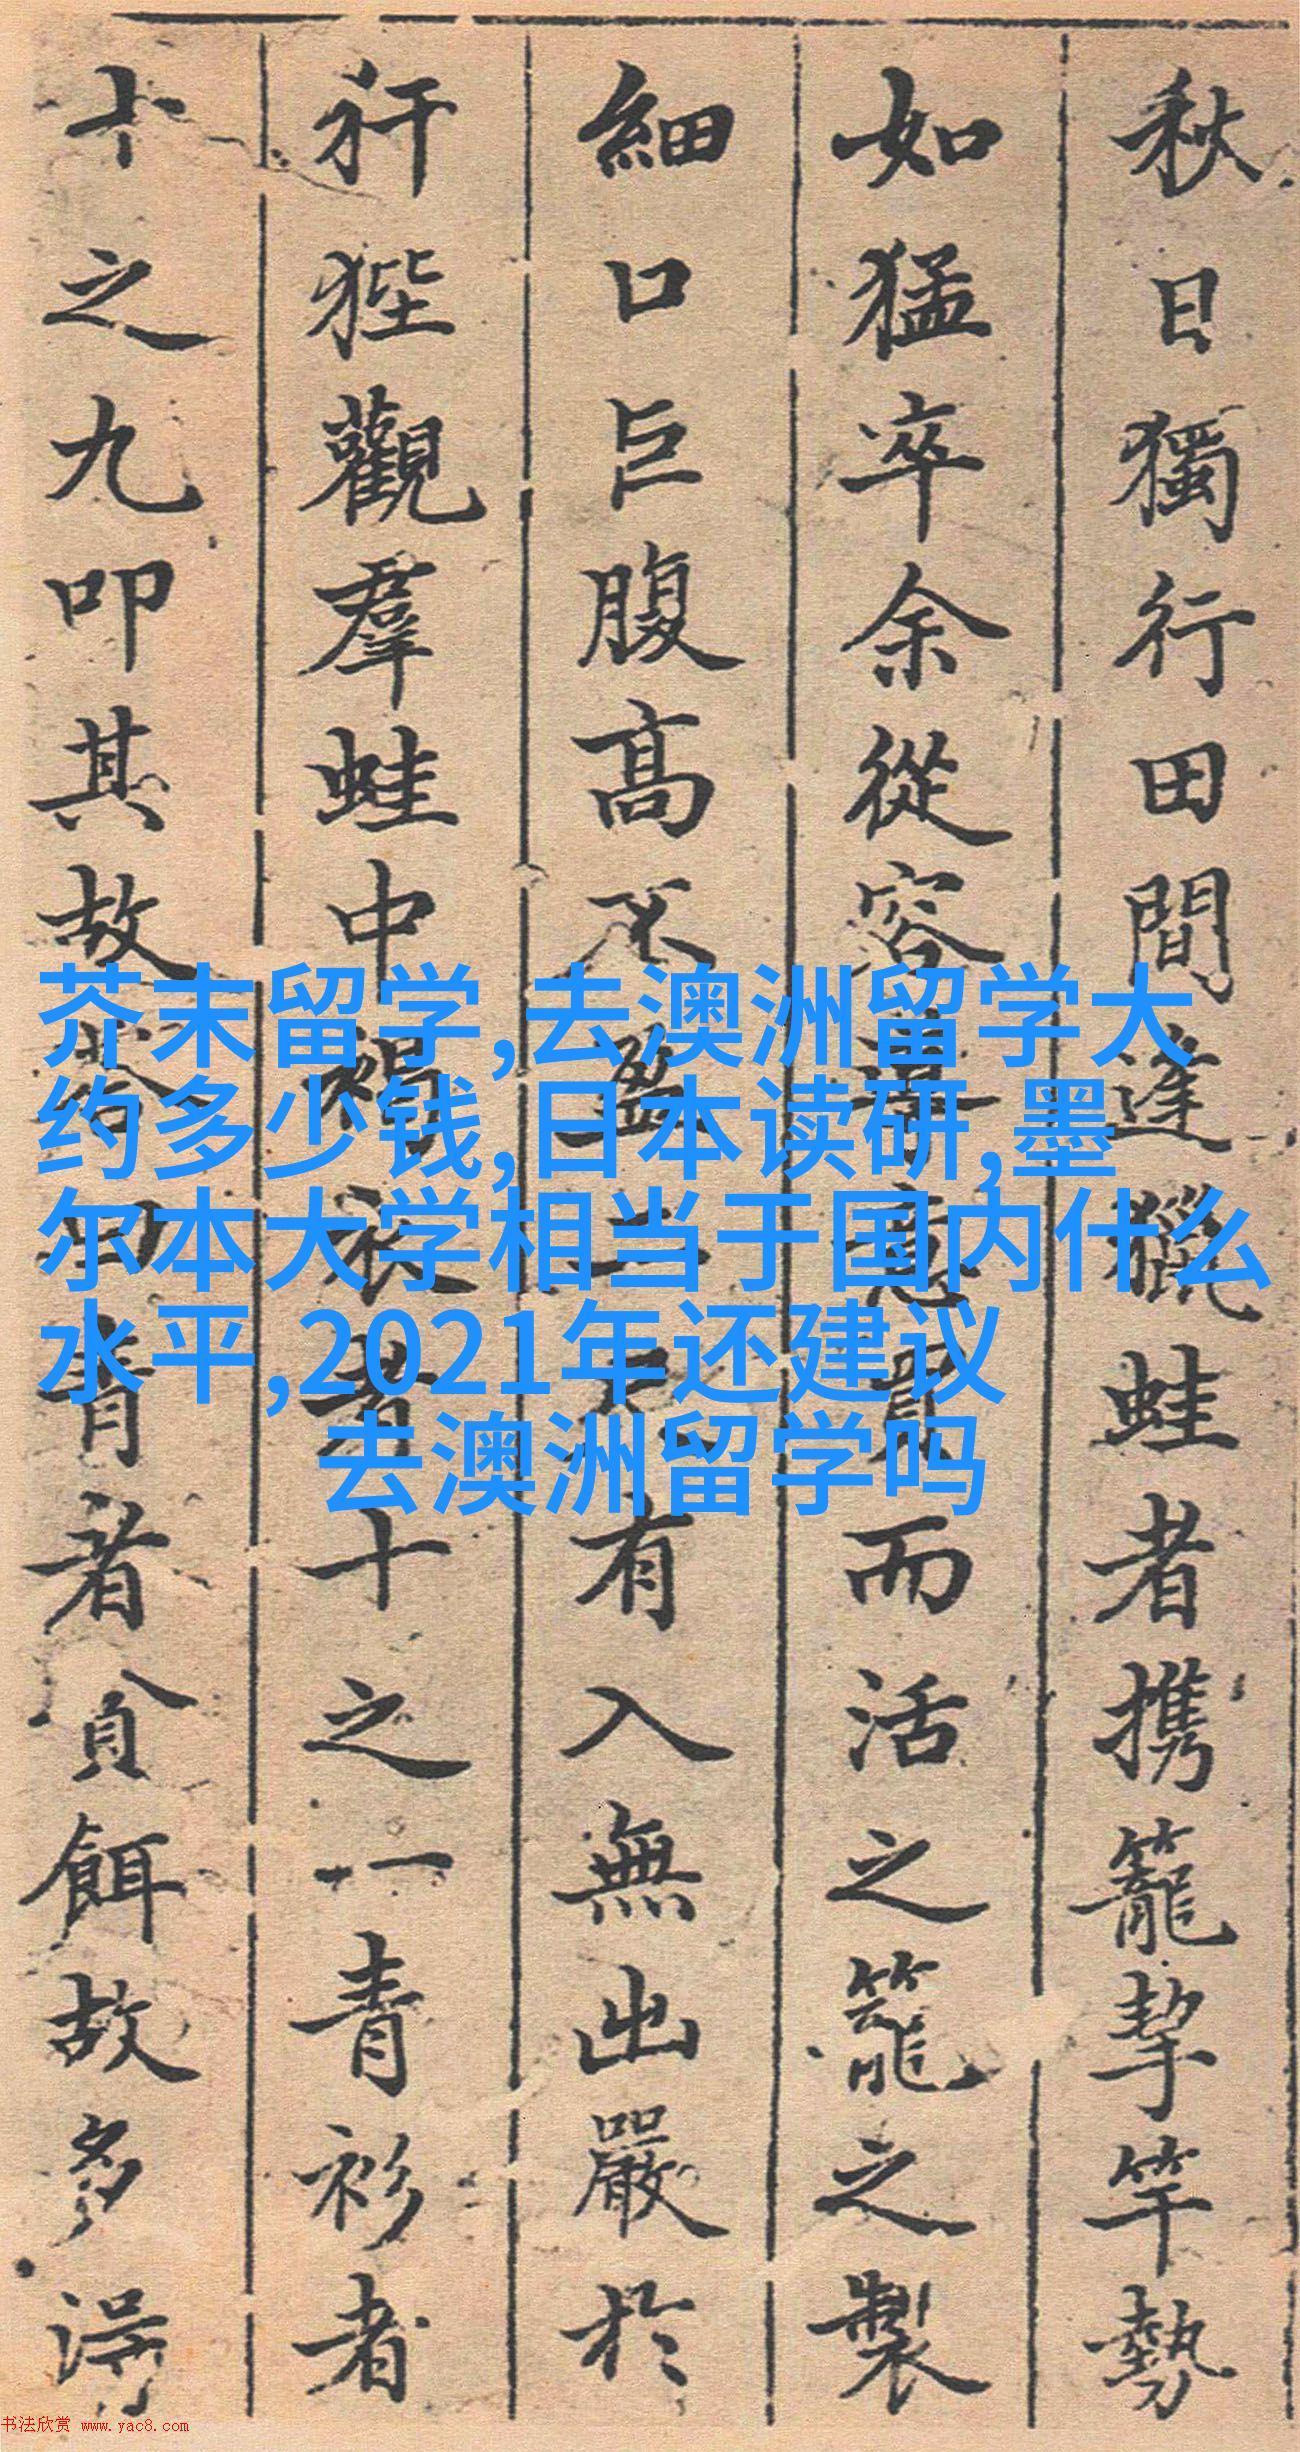 秋日獨行田間逢獵蛙者携籠挈竿勢
如猛卒余從容
而活之籠之製
細口巨腹高不盈
有入無出嚴於
犴狴觀羣蛙中褐衣者十之一青衫者
十之九叩其故
青者貪餌故多得
芥末留学,去澳洲留学大
约多少钱,日本读研,墨
尔本大学相当于国内什么
水平,2021年还建议
去澳洲留学吗
书法欣赏 www.yac8.com